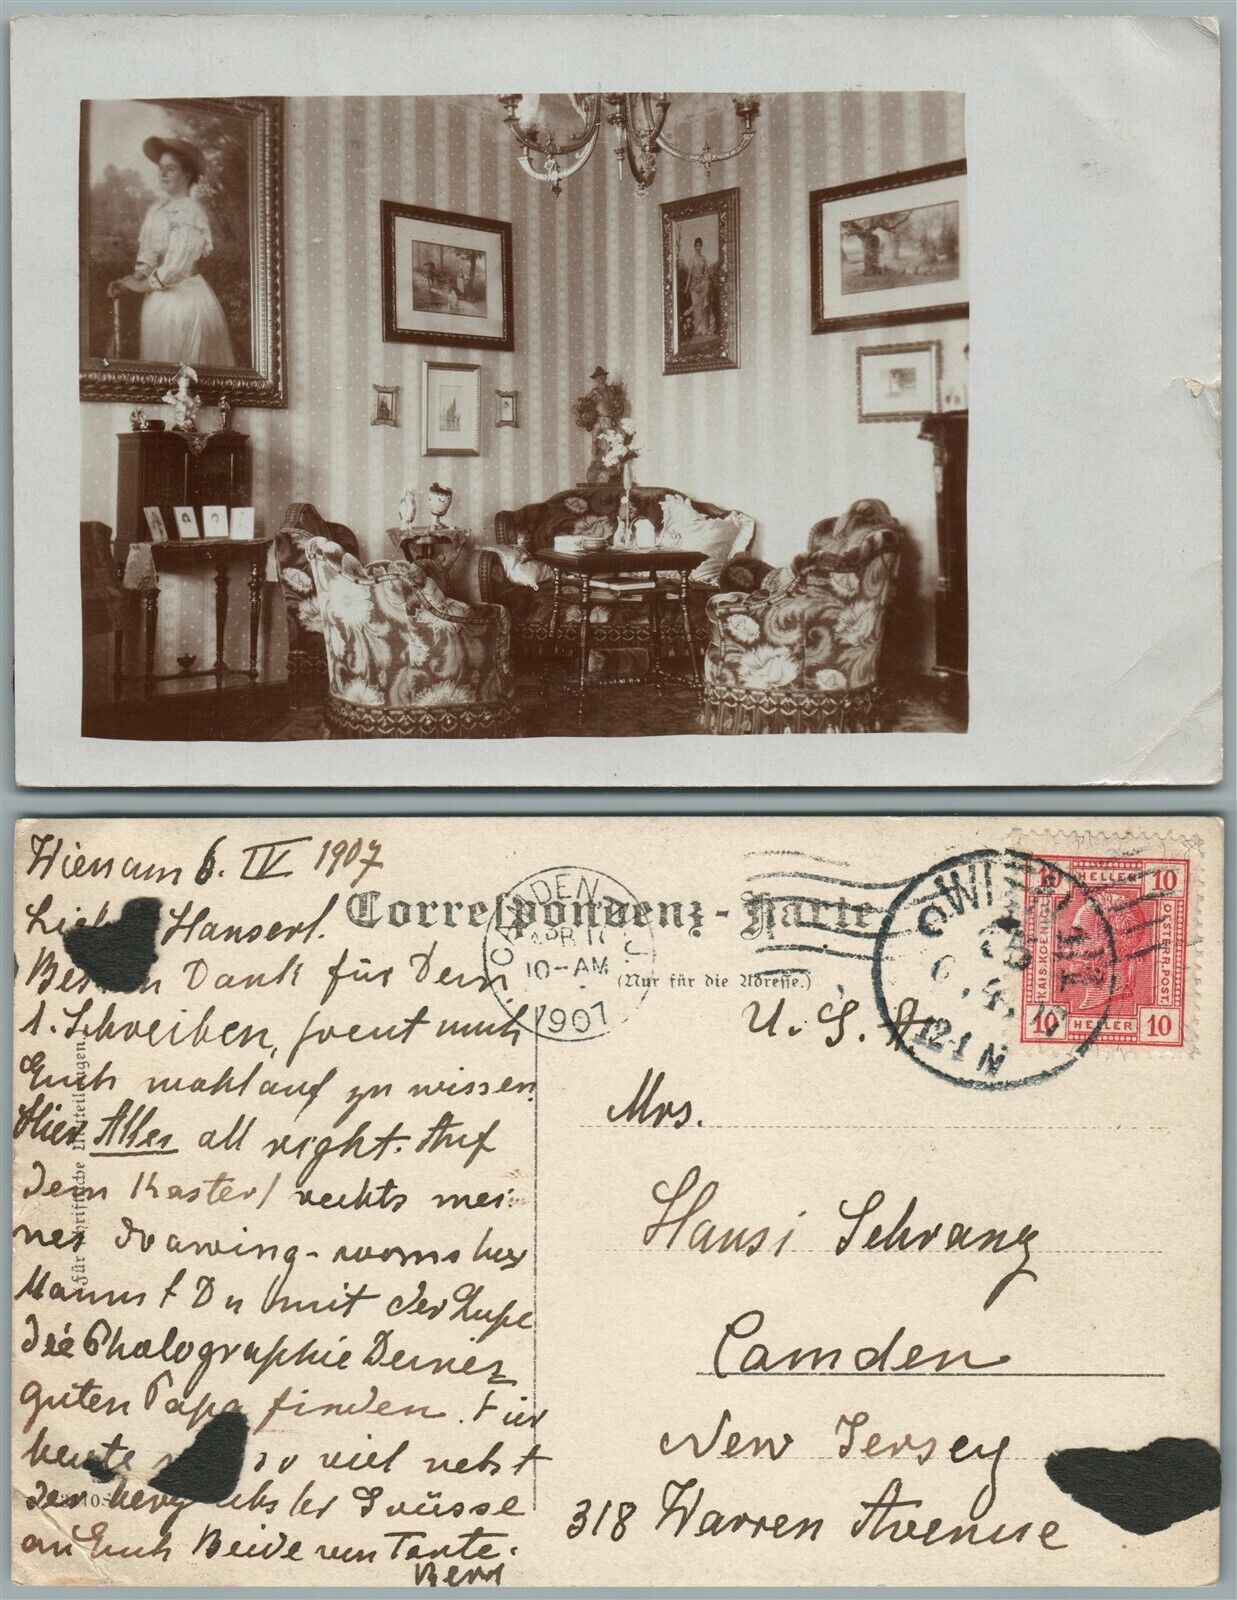 Wien am 6. IV 1907
Hanserl.
Dank für Dein
1. Schreiben, freut mich
Euch wohlauf zu wissen.
Hier Alles all right. Auf
dem Kasterl rechts mei-
nes drawing-rooms hier
kannst Du mit der Lupe
die Photographie Deines
guten Papa finden. Für
heute so viel nebst
den Grüsse
an Euch Beide von Tante
Correspondenz-Karte
(Nur für die Adresse.)
Für schriftliche Mitteilungen.
CAMDEN
APR 17
10-AM
1907
WIEN
6.4.07
12-1N
10 HELLER 10
KAIS. KOENIGL. OESTERR. POST.
10 HELLER 10
U. S. A.
Mrs.
Hansi Schranz
Camden
New Jersey
318 Warren Avenue